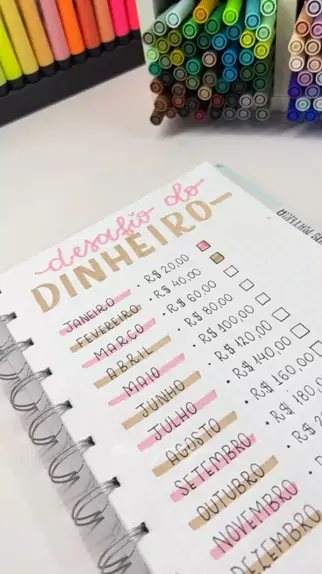 desafio do
DINHEIRO
JANEIRO • R$ 20,00
FEVEREIRO • R$ 40,00
MARÇO • R$ 60,00
ABRIL • R$ 80,00
MAIO • R$ 100,00
JUNHO • R$ 120,00
JULHO • R$ 140,00
AGOSTO • R$ 160,00
SETEMBRO • R$ 180,
OUTUBRO • R$ 2
NOVEMBRO • R$
DEZEMBRO